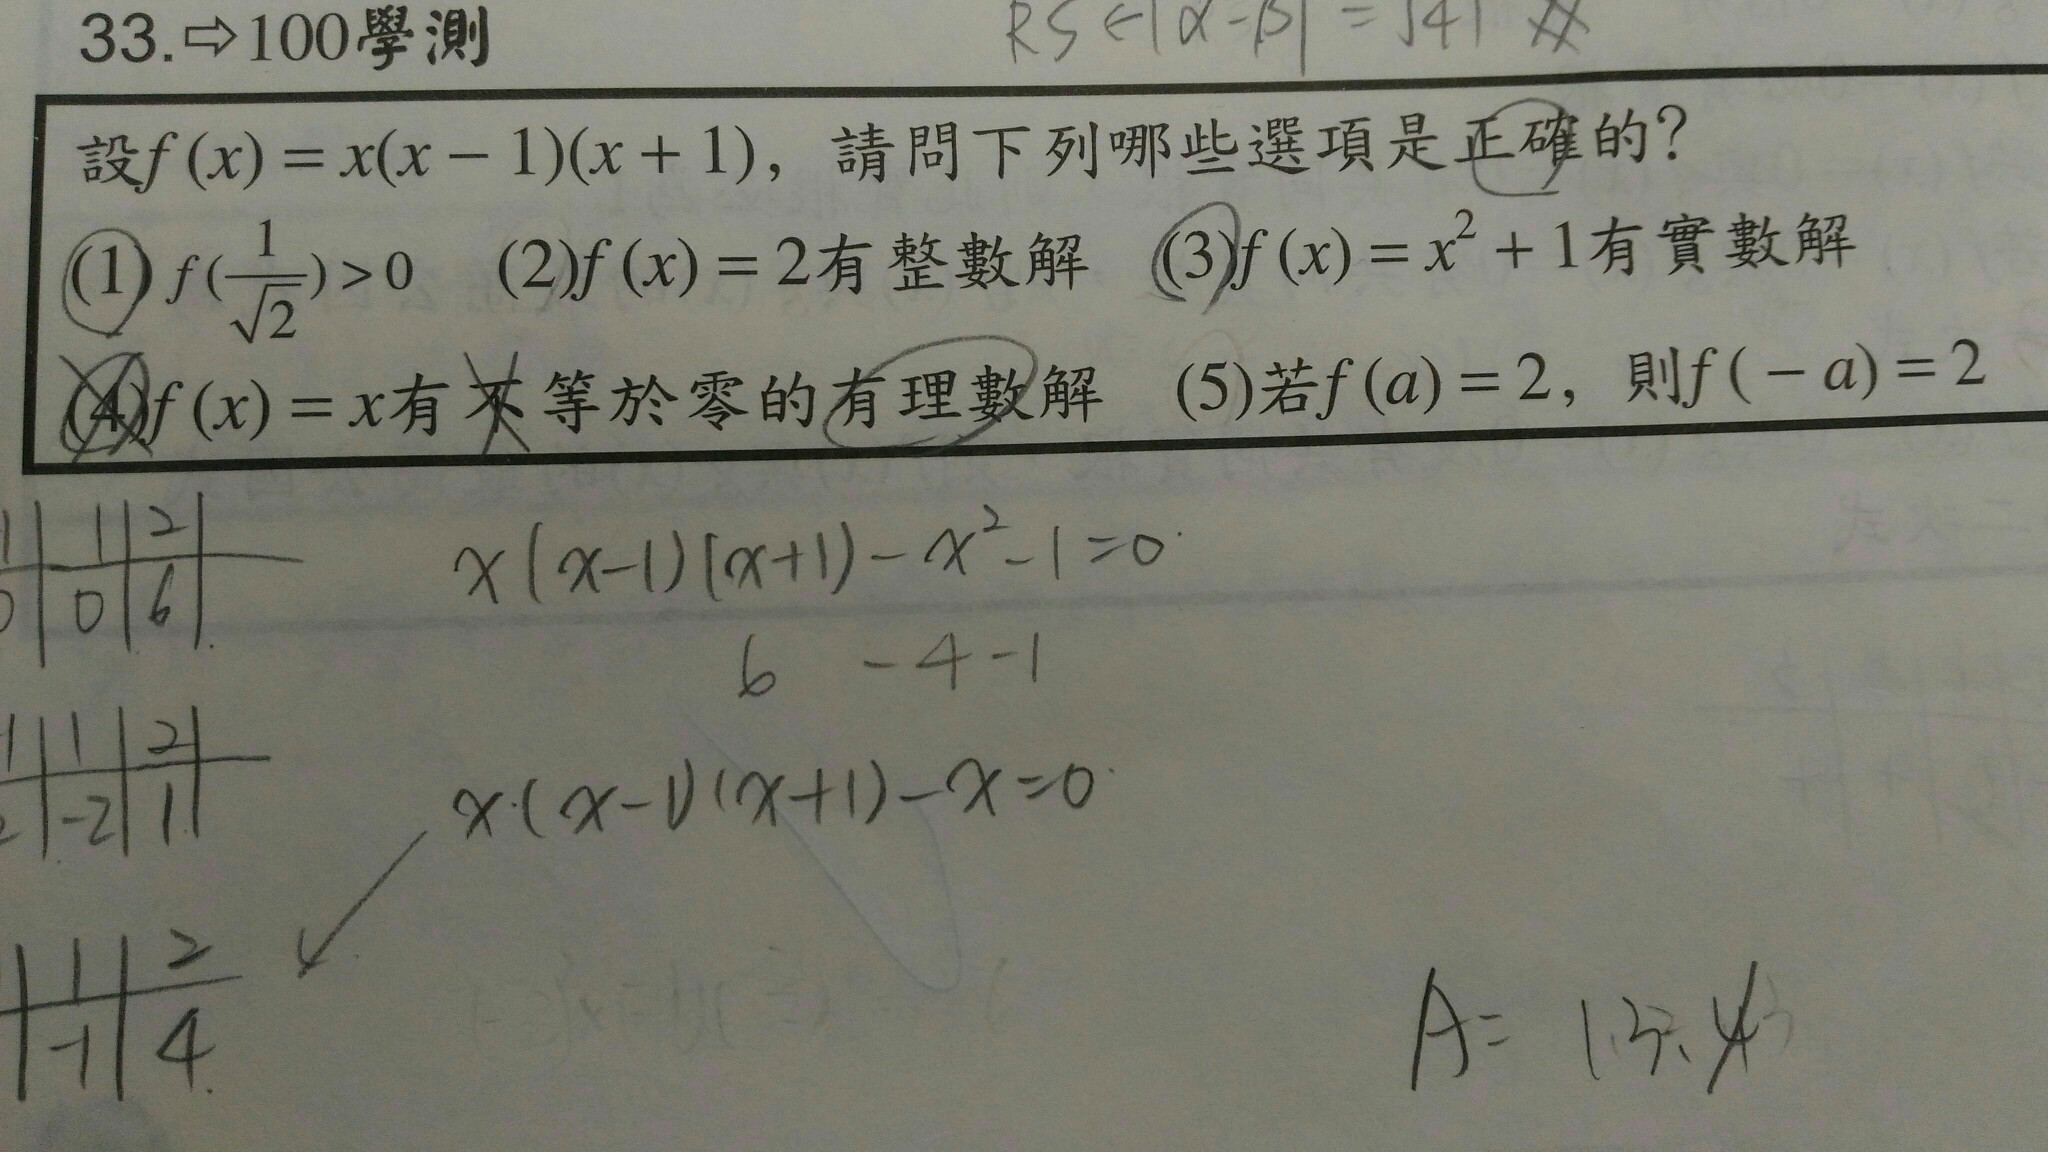 RS ← |α-β| = √41 #
33.⇨100學測
設f(x) = x(x − 1)(x + 1)，請問下列哪些選項是正確的？
(1) f(1/√2) > 0 (2)f(x) = 2有整數解 (3)f(x) = x² + 1有實數解
(4)f(x) = x有不等於零的有理數解 (5)若f(a) = 2，則f(−a) = 2
1 | 1 | 2 |
0 | 0 | 6 |
x(x-1)(x+1)-x²-1=0
6 -4-1
1 | 1 | 2 |
2 | -2 | 1 |
x(x-1)(x+1)-x=0
| 1 | 2
| -1 | 4
A= 1.3.4